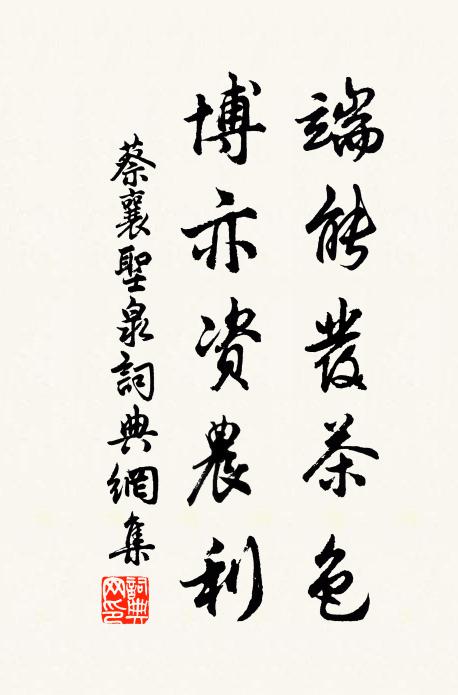 端能發茶色
博亦資農利
蔡襄聖泉詞典網集
詞典網印